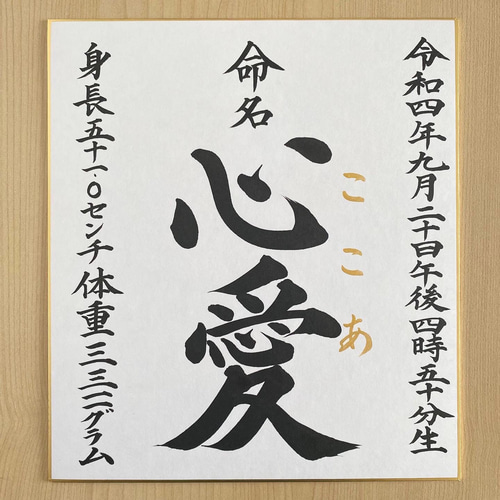 令和四年九月二十日午後四時五十分生
命名
心愛
ここあ
身長五十一・〇センチ体重三三一二グラム